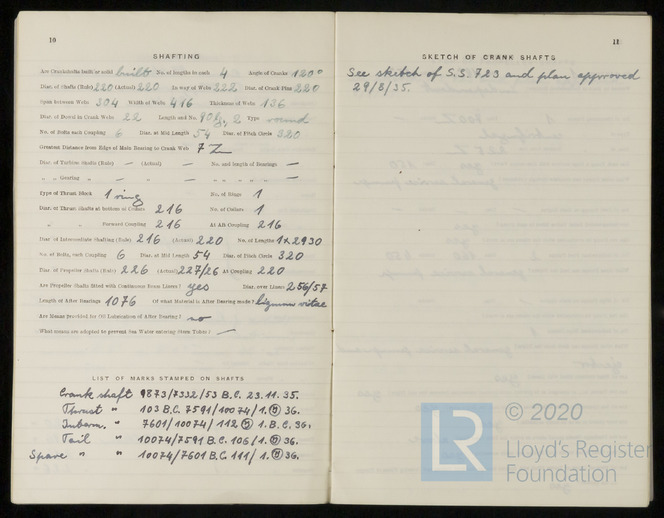 10
SHAFTING
Are Crankshafts built or solid built No. of lengths in each 4 Angle of Cranks 120°
Diar. of Shafts (Rule) 220 (Actual) 220 In way of Webs 222 Diar. of Crank Pins 220
Span between Webs 304 Width of Webs 416 Thickness of Webs 136
Diar. of Dowel in Crank Webs 22 Length and No. 90 2 Type round
No. of Bolts each Coupling 6 Diar. at Mid Length 54 Diar. of Pitch Circle 320
Greatest Distance from Edge of Main Bearing to Crank Web 7
Diar. of Turbine Shafts (Rule) — (Actual) — No. and length of Bearings —
„ „ Gearing „ — „ — „ „ — —
Type of Thrust Block 1 ring No. of Rings 1
Diar. of Thrust Shafts at bottom of Collars 216 No. of Collars 1
„ „ Forward Coupling 216 At Aft Coupling 216
Diar. of Intermediate Shafting (Rule) 216 (Actual) 220 No. of Lengths 1x2930
No. of Bolts, each Coupling 6 Diar. at Mid Length 54 Diar. of Pitch Circle 320
Diar. of Propeller Shafts (Rule) 226 (Actual) 227/26 At Coupling 220
Are Propeller Shafts fitted with Continuous Brass Liners? yes Diar. over Liners 256/57
Length of After Bearings 1076 Of what Material is After Bearing made? lignum vitae
Are Means provided for Oil Lubrication of After Bearing? no
What means are adopted to prevent Sea Water entering Stern Tubes? —
LIST OF MARKS STAMPED ON SHAFTS
Crank shaft 9873/7332/53 B.C. 23.11.35.
Thrust „ 103 B.C. 7591/10074/1. 36.
Interm. „ 7601/10074/112 1. B.C. 36.
Tail „ 10074/7591 B.C. 106/1. 36.
Spare „ „ 10074/7601 B.C. 111/1. 36.
11
SKETCH OF CRANK SHAFTS
See sketch of S.S. 723 and plan approved
29/8/35.
LR
© 2020
Lloyd's Register
Foundation